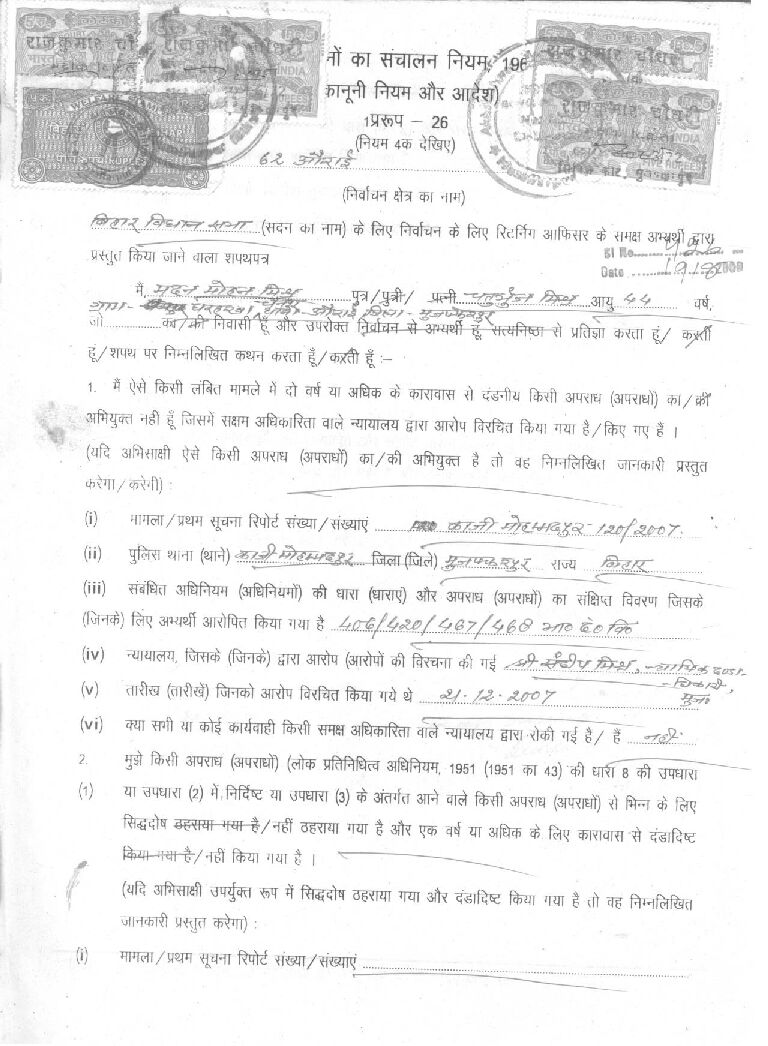 नों का संचालन नियम, 196
कानूनी नियम और आदेश)
1प्ररूप - 26
(नियम 4क देखिए)
62 औराई
(निर्वाचन क्षेत्र का नाम)
बिहार विधान सभा (सदन का नाम) के लिए निर्वाचन के लिए रिटर्निंग आफिसर के समक्ष अभ्यर्थी द्वारा
Sl No.
प्रस्तुत किया जाने वाला शपथपत्र
Date
मैं, मदन मोहन मिश्र पुत्र/पुत्री/ पत्नी चतुर्भुज मिश्र आयु 44 वर्ष,
ग्राम- थाना औराई जिला- मुजफ्फरपुर
जो का/की निवासी हूँ और उपरोक्त निर्वाचन से अभ्यर्थी हूँ, सत्यनिष्ठा से प्रतिज्ञा करता हूं/ करती
हूं/शपथ पर निम्नलिखित कथन करता हूँ/करती हूँ :–
1. मैं ऐसे किसी लंबित मामले में दो वर्ष या अधिक के कारावास से दंडनीय किसी अपराध (अपराधों) का/की
अभियुक्त नहीं हूँ जिसमें सक्षम अधिकारिता वाले न्यायालय द्वारा आरोप विरचित किया गया है/किए गए हैं ।
(यदि अभिसाक्षी ऐसे किसी अपराध (अपराधों) का/की अभियुक्त है तो वह निम्नलिखित जानकारी प्रस्तुत
करेगा/करेगी) :
(i) मामला/प्रथम सूचना रिपोर्ट संख्या/संख्याएं काजी मोहम्मदपुर 120/2007.
(ii) पुलिस थाना (थाने) काजी मोहम्मदपुर जिला(जिले) मुजफ्फरपुर राज्य बिहार
(iii) संबंधित अधिनियम (अधिनियमों) की धारा (धाराएं) और अपराध (अपराधों) का संक्षिप्त विवरण जिसके
(जिनके) लिए अभ्यर्थी आरोपित किया गया है 406/420/467/468 भा० द० वि
(iv) न्यायालय, जिसके (जिनके) द्वारा आरोप (आरोपों की विरचना की गई श्री संदीप मिश्र, न्यायिक दण्डा-
धिकारी,
(v) तारीख (तारीखें) जिनको आरोप विरचित किया गये थे 21.12.2007 मुज०
(vi) क्या सभी या कोई कार्यवाही किसी समक्ष अधिकारिता वाले न्यायालय द्वारा रोकी गई है/ हैं नहीं
2. मुझे किसी अपराध (अपराधों) (लोक प्रतिनिधित्व अधिनियम, 1951 (1951 का 43) की धारा 8 की उपधारा
(1) या उपधारा (2) में निर्दिष्ट या उपधारा (3) के अंतर्गत आने वाले किसी अपराध (अपराधों) से भिन्न के लिए
सिद्धदोष ठहराया गया है/नहीं ठहराया गया है और एक वर्ष या अधिक के लिए कारावास से दंडादिष्ट
किया गया है/नहीं किया गया है ।
(यदि अभिसाक्षी उपर्युक्त रूप में सिद्धदोष ठहराया गया और दंडादिष्ट किया गया है तो वह निम्नलिखित
जानकारी प्रस्तुत करेगा) :
(i) मामला/प्रथम सूचना रिपोर्ट संख्या/संख्याएं